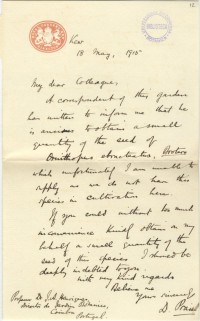 Kew
18 May, 1915
My dear Colleague,
A correspondent of this garden
has written to inform me that he
is anxious to obtain a small
quantity of the seed of
Ornithopus
which unfortunately I am unable to
supply as we do not have this
species in cultivation here.
If you could without too much
inconvenience kindly obtain on my
behalf a small quantity of the
seed of this species I should be
deeply indebted to you.
with very kind regards
Believe me
Yours sincerely
D. Prain
Professor Dr. J. A. Henriques
Coimbra
Portugal